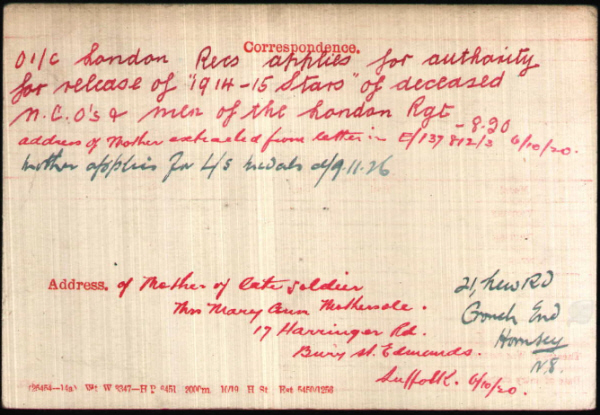 Correspondence.
O i/c London Recs applies for authority
for release of "1914-15 Stars" of deceased
N.C.O's & men of the London Rgt -8.20
address of Mother extracted from letter in E/137812/3 6/10/20.
Mother applies for L/S medals d/9.11.26
Address. of Mother of late soldier
Mrs Mary Ann Mothersole.
17 Harringer Rd.
Bury St. Edmunds.
Suffolk. 6/10/20.
21, New RD
Crouch End
Hornsey
N8.
Wt W 8347—H P 6451 2000m 10/19 H St